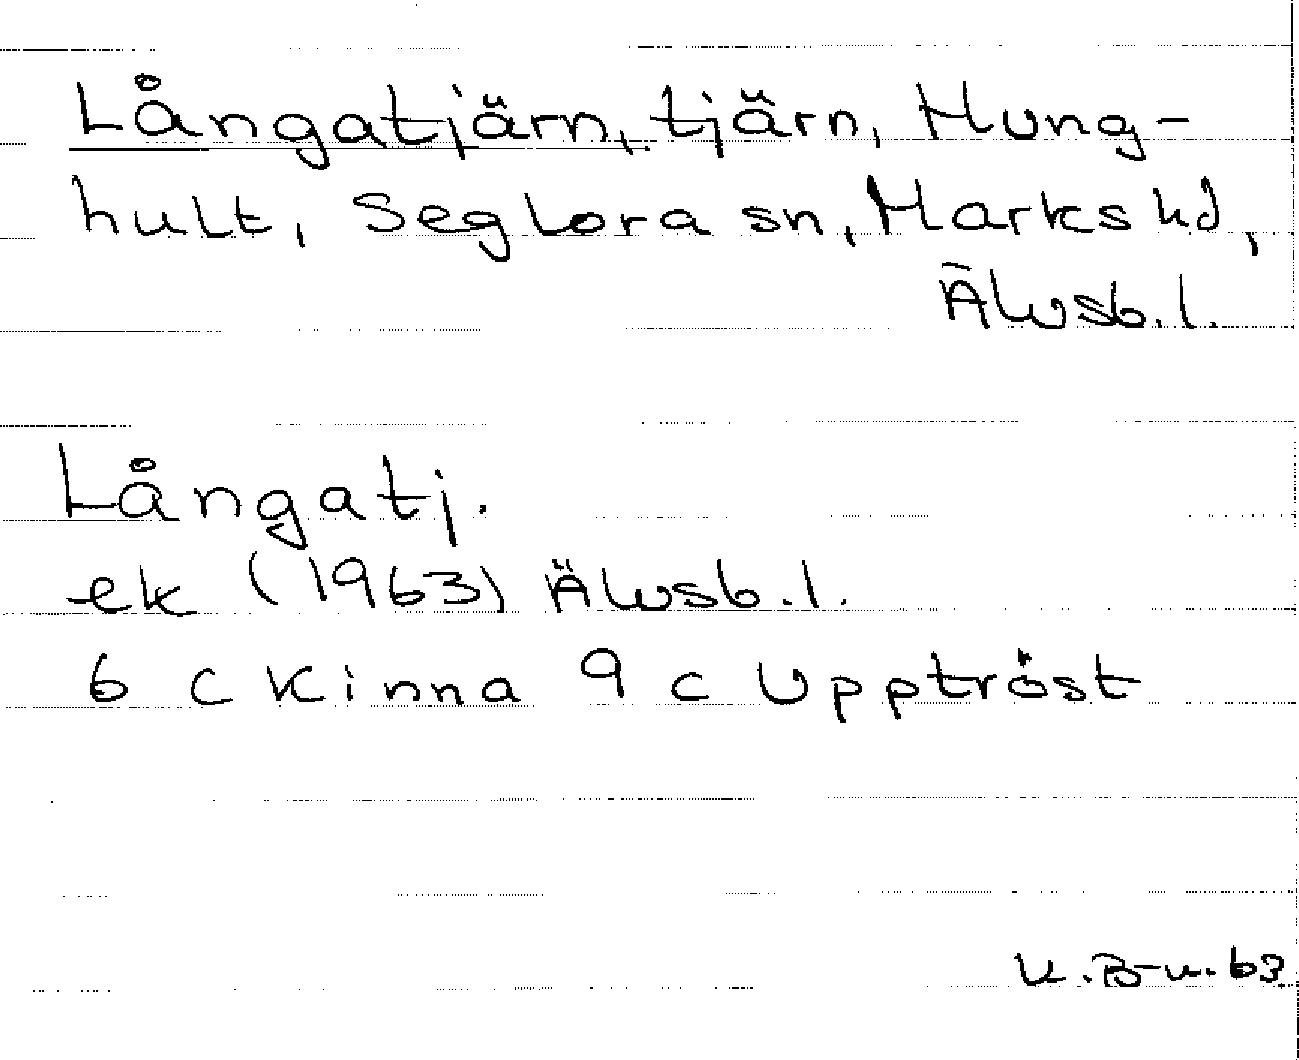 Långatjärn, tjärn, Hung-
hult, Seglora sn, Marks hd,
Älvsb. l.
Långatj.
ek (1963) Älvsb. l.
6 c Kinna 9 c Upptröst
K. B-n. 63